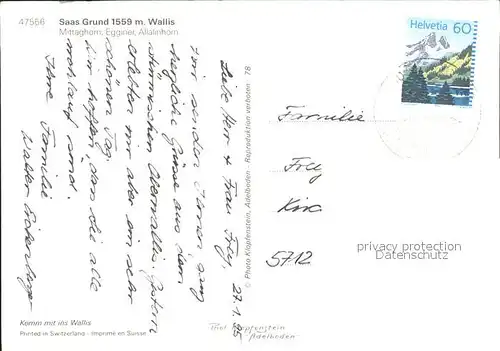 47556
Saas Grund 1559 m. Wallis
Mittaghorn, Egginer, Allalinhorn
Helvetia 60
27.1.95
Liebe Herr & Frau Frey,
wir senden Ihnen ganz
herzliche Grüsse aus dem
stürmischen Oberwallis. Gestern
erlebten wir aber ein sehr
schönen Tag.
Wir hoffen, dass Sie alle
wohlauf sind.
Ihre Familie
Walter
Familie
Frey
5712
© Photo Klopfenstein, Adelboden - Reproduktion verboten 78
Komm mit ins Wallis
Printed in Switzerland - Imprimé en Suisse
Thol Klopfenstein
Adelboden
privacy protection
Datenschutz